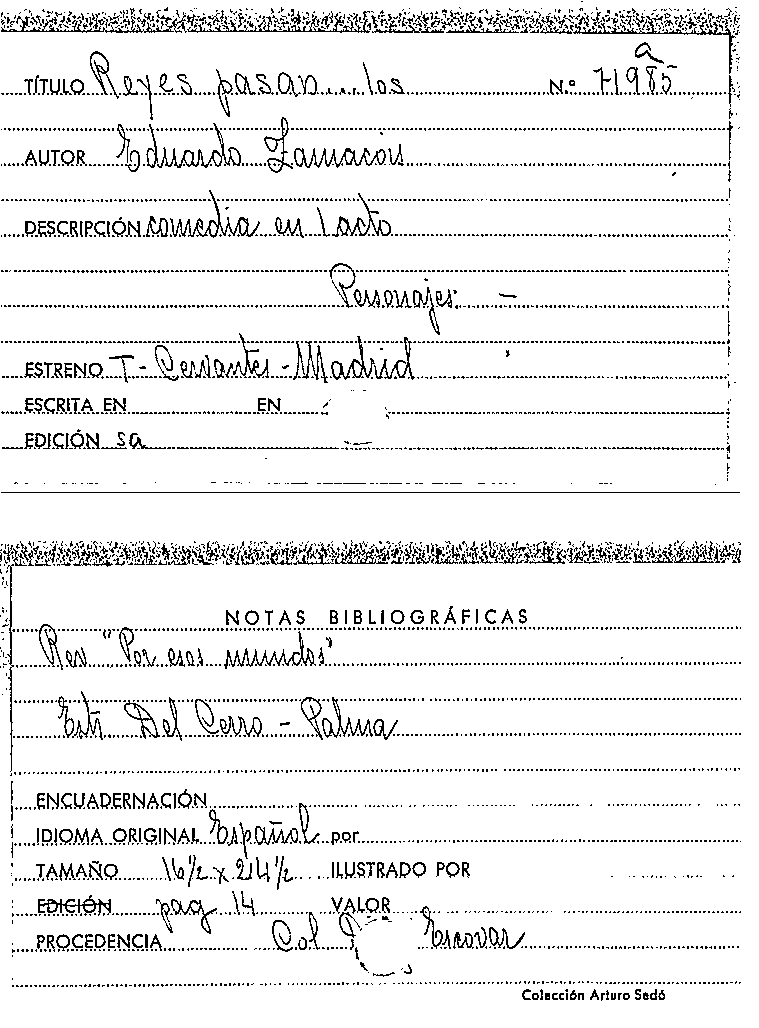 TÍTULO Reyes pasan... los N.º 71985 a
AUTOR Eduardo Zamacois
DESCRIPCIÓN comedia en 1 acto
Personajes: —
ESTRENO T- Cervantes - Madrid
ESCRITA EN EN
EDICIÓN sa
NOTAS BIBLIOGRÁFICAS
Rev "Por esos mundos"
Estr. Del Cerro - Palma
ENCUADERNACIÓN
IDIOMA ORIGINAL Español por
TAMAÑO 16½ x 24½ ILUSTRADO POR
EDICIÓN pag 14 VALOR
PROCEDENCIA Col Escovar
Colección Arturo Sedó